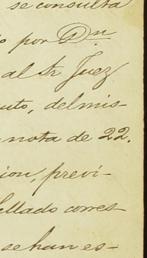 se consulta
o por Dn
al Sr Juez
uto, del mis-
nota de 22.
ion, previ-
ellado corres-
se han es-